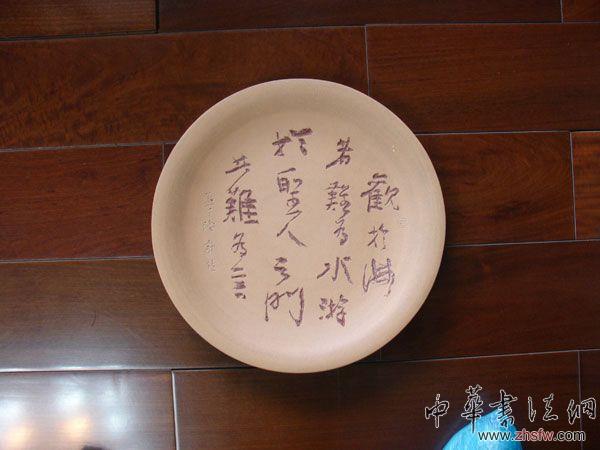 觀於海
者難為水游
於聖人之門
者難為言
中華書法網
www.zhsfw.com